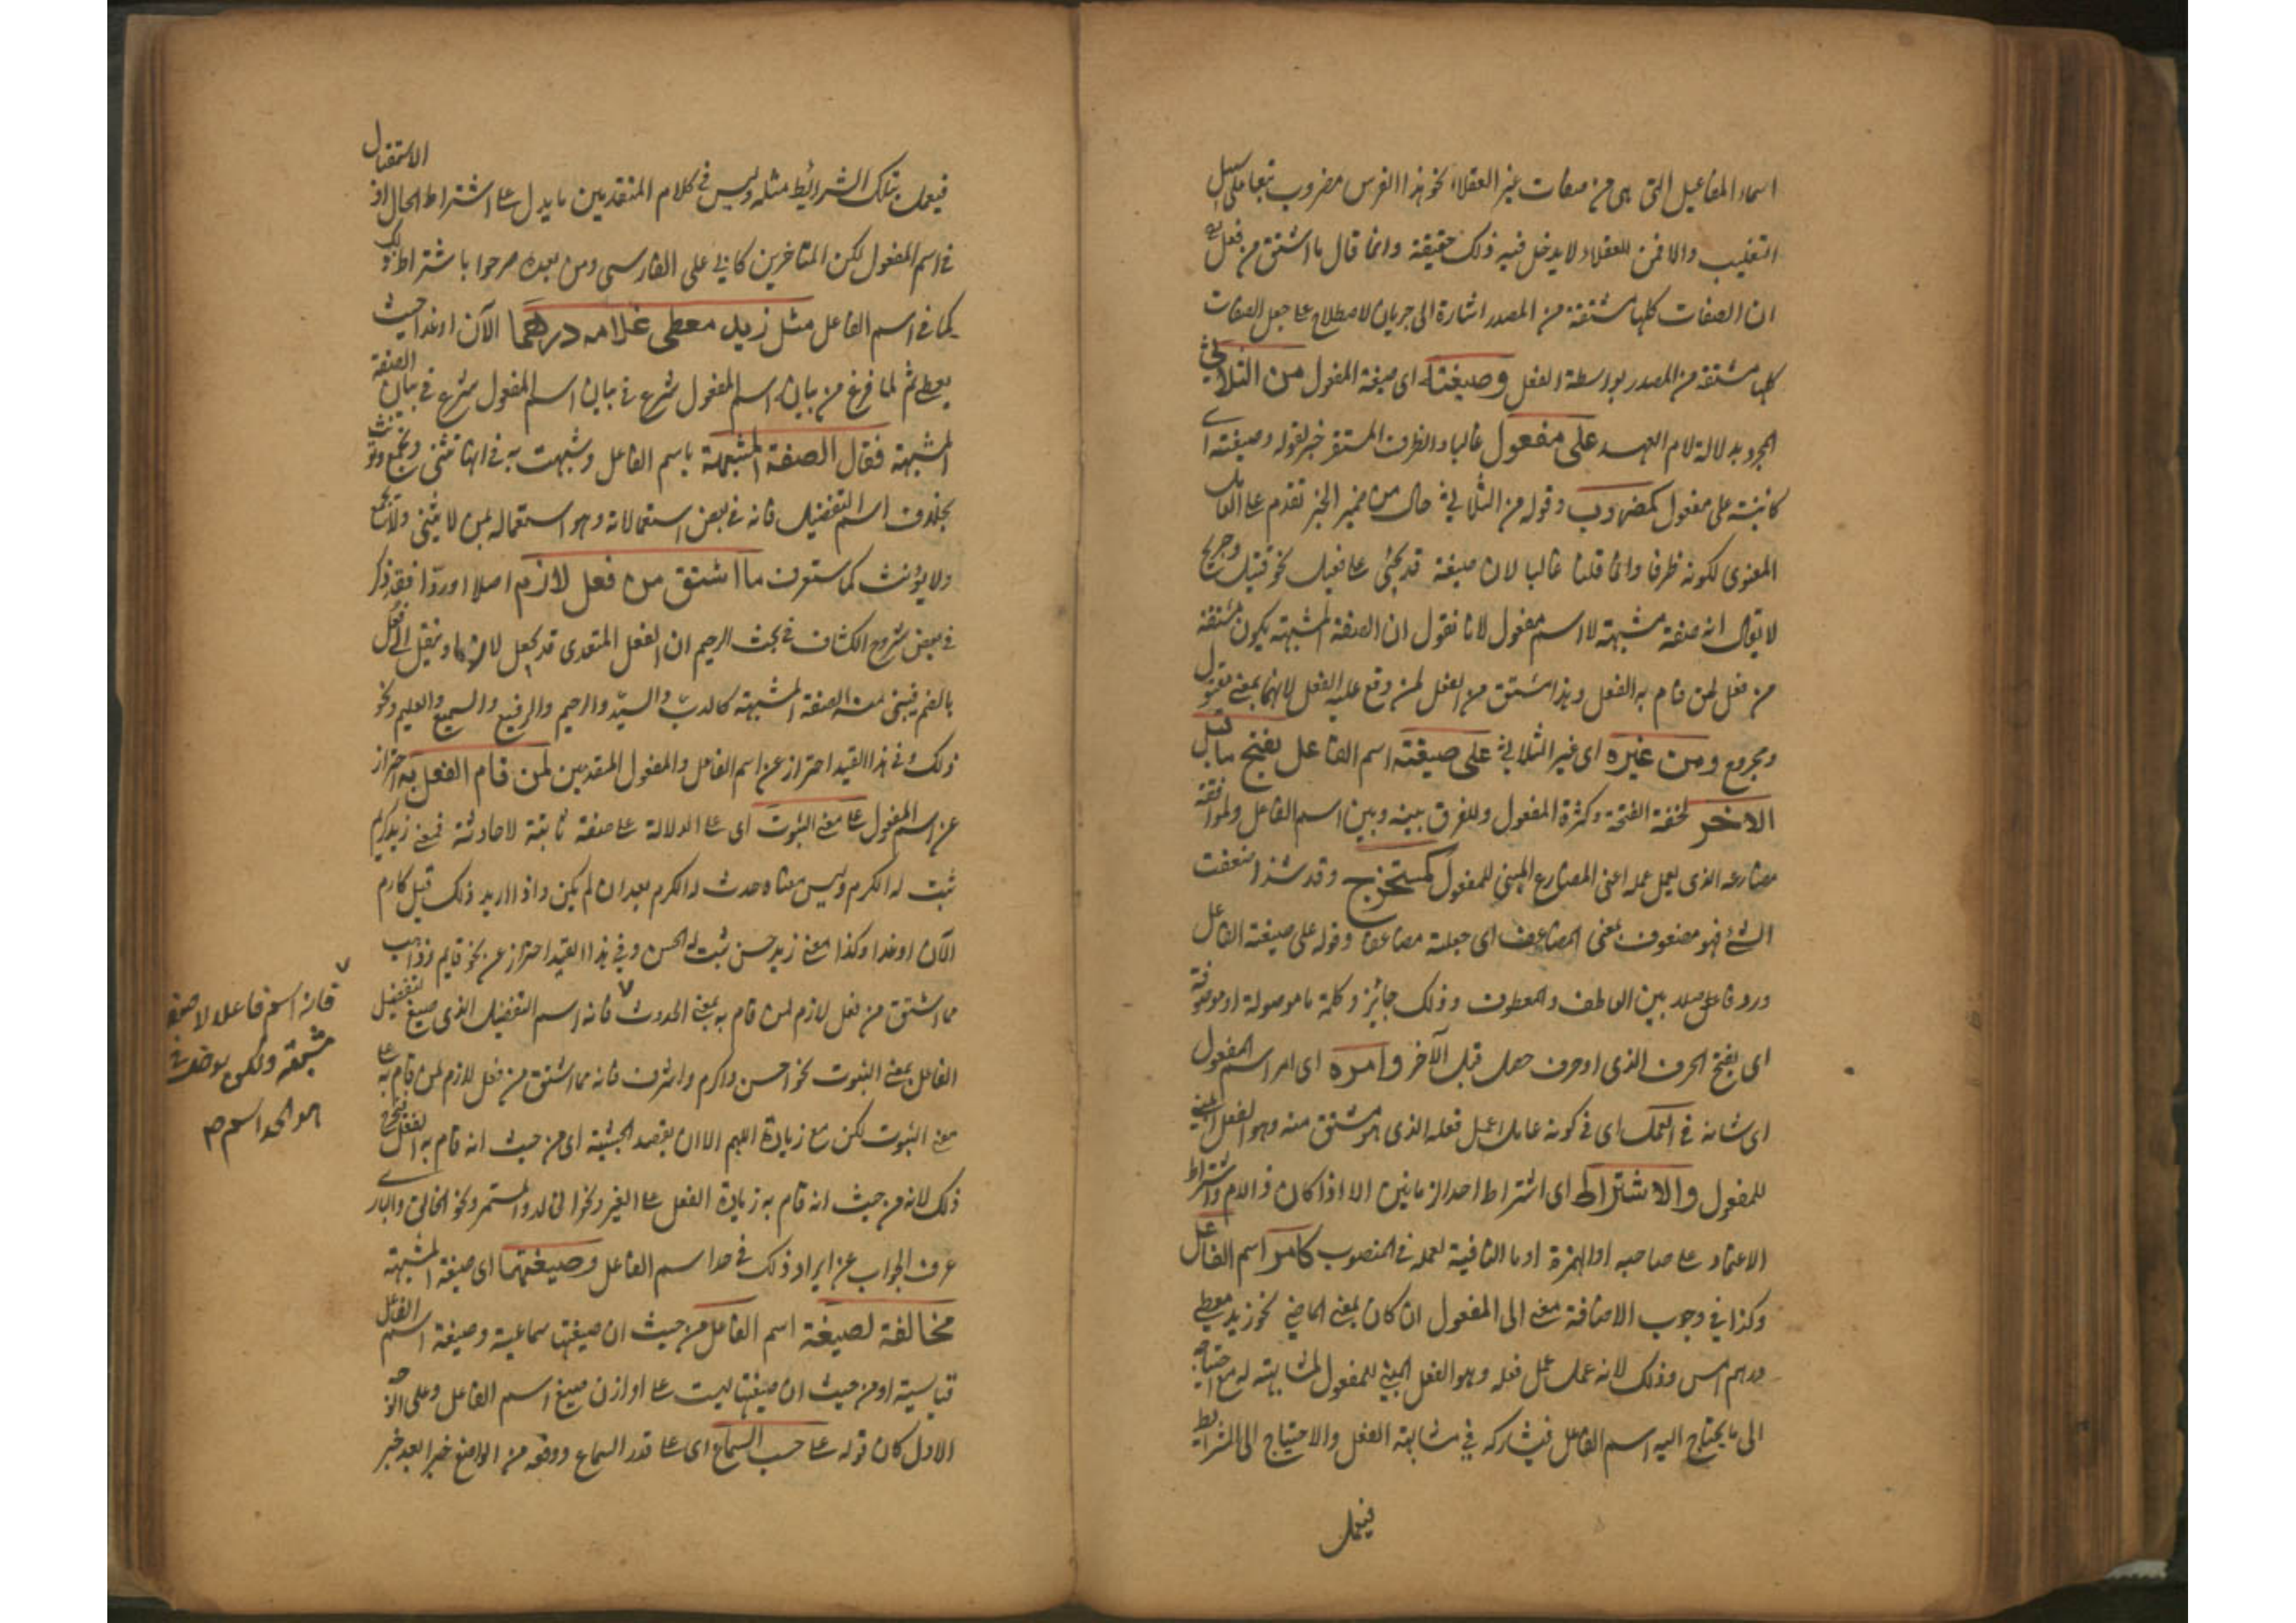 اسماء المفاعيل التي هي من صفات غير العقلاء نحو هذا الفرس مضروب تبعا على سبيل
التغليب والا فمن للعقلاء لا يدخل فيه ذلك حقيقة وانما قال ما اشتق من فعل مع
ان الصفات كلها مشتقة من المصدر اشارة الى جريان الاصطلاح على جعل الصفات
كلها مشتقة من المصدر بواسطة الفعل وصيغته اى صيغة المفعول من الثلاثي
المجرد بدلالة لام العهد على مفعول غالبا والظرف المستقر خبر لقوله وصيغته اى
كائنة على مفعول كمضروب وقوله من الثلاثي حال من ضمير الخبر تقدم على العامل
المعنوى لكونه ظرفا وانما قلنا غالبا لان صيغة قد يجئ على فعيل نحو قتيل وجريح
لا يقال انه صفة مشبهة لا اسم مفعول لانا نقول ان الصفة المشبهة يكون مشتقة
من فعل لمن قام به الفعل وهذا مشتق من الفعل لمن وقع عليه الفعل لانهما بمعنى مقتول
ومجروح ومن غيره اى غير الثلاثي على صيغة اسم الفاعل بفتح ما قبل
الاخر لخفة الفتحة وكثرة المفعول وللفرق بينه وبين اسم الفاعل ولموافقة
مضارعه الذى يعمل عمله اعنى المضارع المبنى للمفعول كمستخرج وقد شذ اضعفت
الشئ فهو مضعوف بمعنى المضاعف اى جعلته مضاعفا وقوله على صيغة الفاعل
ورد فاصل بين العاطف والمعطوف وذلك جائز وكلمة ما موصولة او موصوفة
اى بفتح الحرف الذى او حرف حصل قبل الآخر وامره اى امر اسم المفعول
اى شانه في العمل اى في كونه عاملا عمل فعله الذى هو مشتق منه وهو الفعل المبنى
للمفعول والاشتراط اى اشتراط احد الزمانين الا اذا كان ذا اللام واشتراط
الاعتماد على صاحبه او الهمزة او ما النافية لعمله في المنصوب كامر اسم الفاعل
وكذا في وجوب الاضافة معنى الى المفعول ان كان بمعنى الماضي نحو زيد معطى
درهم امس وذلك لانه عمل عمل فعله وهو الفعل المبنى للمفعول لمشابهته له مع احتياجه
الى ما يحتاج اليه اسم الفاعل فيشاركه في مشابهة الفعل والاحتياج الى الشرائط
فيعمل
فيعمل بتلك الشرائط مثله وليس في كلام المتقدمين ما يدل على اشتراط الحال او الاستقبال
في اسم المفعول لكن المتاخرين كابي على الفارسى ومن بعده صرحوا باشتراط ذلك
كما في اسم الفاعل مثل زيد معطى غلامه درهما الآن او غدا حيث
يعط ثم لما فرغ من بيان اسم المفعول شرع في بيان اسم المفعول شرع في بيان الصفة
المشبهة فقال الصفة المشبهة باسم الفاعل وشبهت به في انها تثنى وتجمع وتؤنث
بخلاف اسم التفضيل فانه في بعض استعمالاته وهو استعماله بمن لا يثنى ولا يجمع
ولا يؤنث كما ستعرف ما اشتق من فعل لازم اصلا او ردّا فقد ذكر
في بعض شروح الكشاف في بحث الرحيم ان الفعل المتعدى قد يجعل لازما وينقل الى فعُل
بالضم فيبنى منه الصفة المشبهة كالربّ والسيّد والرحيم والرفيع والسميع والعليم ونحو
ذلك وفي هذا القيد احتراز عن اسم الفاعل والمفعول المتعدمين لمن قام الفعل به احتراز
عن اسم المفعول على معنى الثبوت اى على الدلالة على صفة ثابتة لا حادثة فمعنى زيد كريم
ثبت له الكرم وليس معناه حدث له الكرم بعد ان لم يكن واذا اريد ذلك قيل كارم
الآن او غدا وكذا معنى زيد حسن ثبت له الحسن وفي هذا القيد احتراز عن نحو قايم وذاهب
مما اشتق من فعل لازم لمن قام به بمعنى الحدوث فانه اسم التفضيل الذى صيغ لتفضيل
الفاعل بمعنى الثبوت نحو احسن واكرم واشرف فانه مما اشتق من فعل لازم لمن قام به على
معنى الثبوت لكن مع زيادة اللهم الا ان يقصد الحيثية اى من حيث انه قام به الفعل فيخرج
ذلك لانه من حيث انه قام به زيادة الفعل على الغير ونحو الخالد والمستمر ونحو الخالق والبارى
عرف الجواب عن ايراد ذلك في حد اسم الفاعل وصيغتها اى صيغة المشبهة
مخالفة لصيغة اسم الفاعل من حيث ان صيغتها سماعية وصيغة اسم الفاعل
قياسية او من حيث ان صيغتها ليست على اوزان صيغ اسم الفاعل وعلى الوجه
الاول كان قوله على حسب السماع اى على قدر السماع ووقعه من الواضع خبرا بعد خبر
فانه اسم فاعل لا صفة
مشبهة ولكن